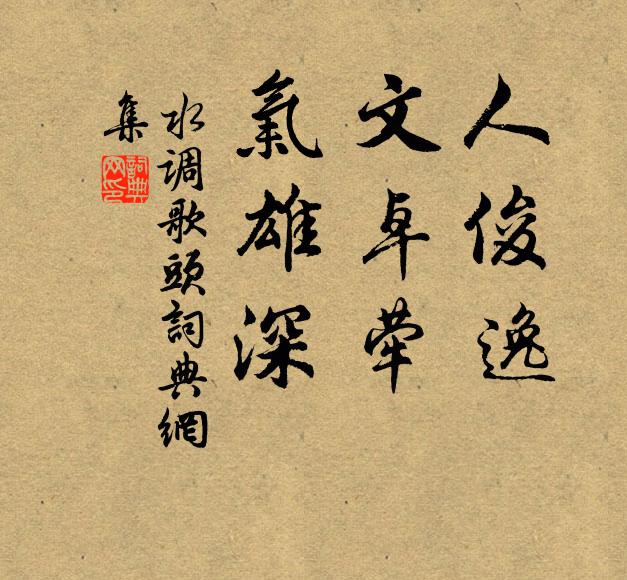 人俊逸
文卓犖
氣雄深
水调歌頭詞典網
集
詞典
网印